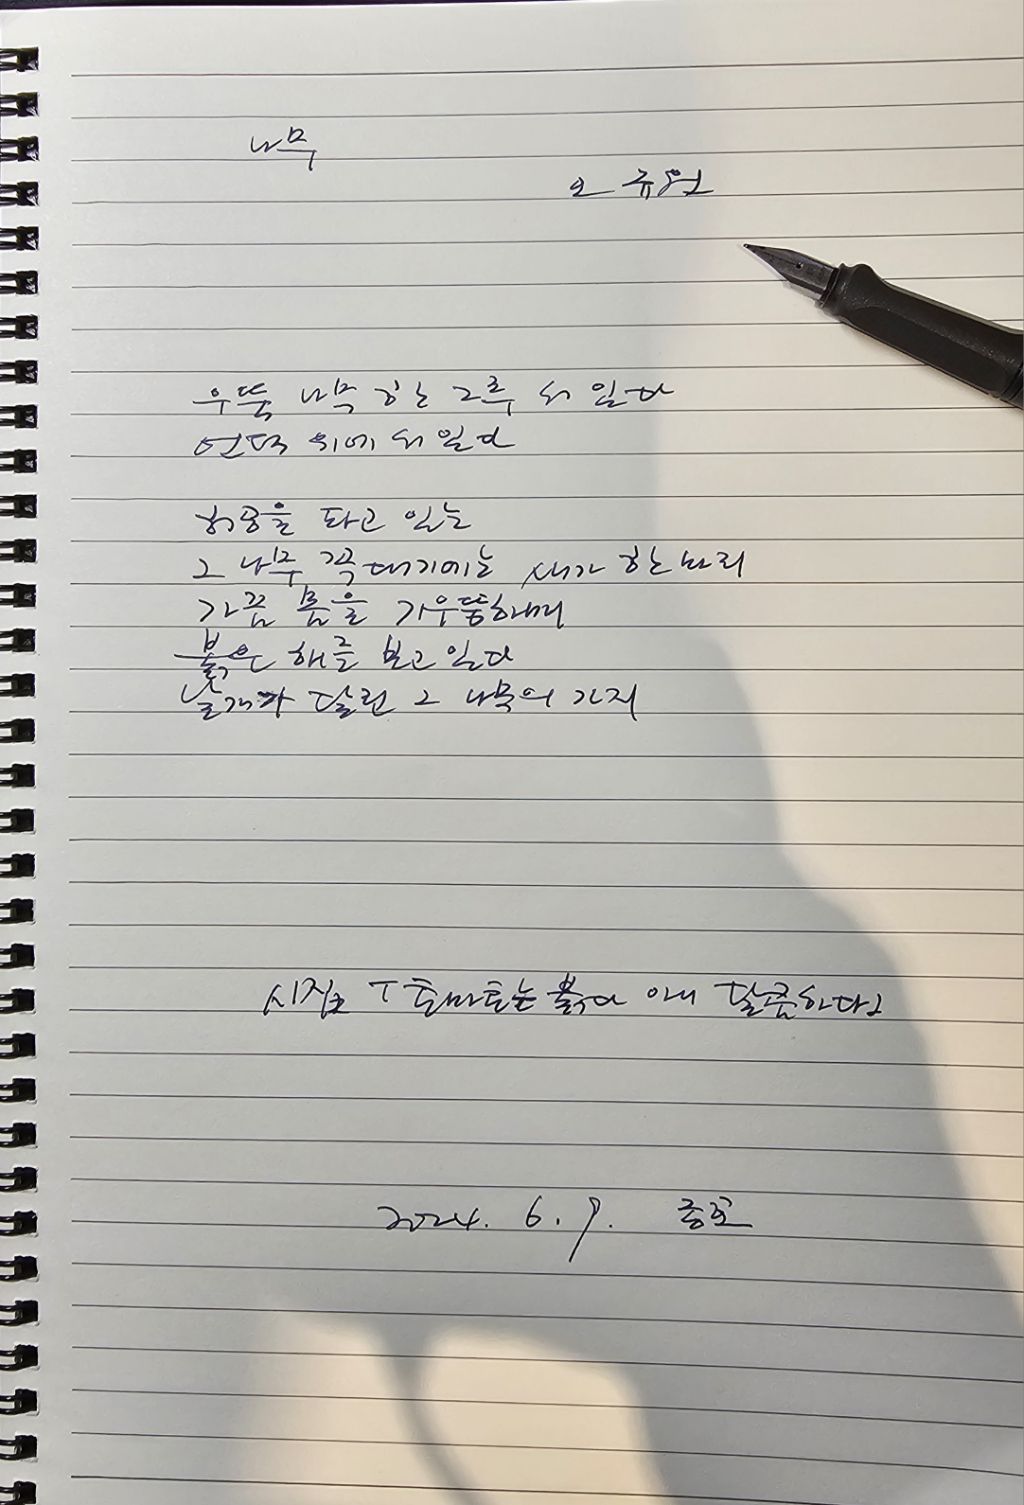 나무
오 규원
우뚝 나무 한 그루 서 있다
언덕 위에 서 있다
허공을 파고 있는
그 나무 꼭대기에는 새가 한 마리
가끔 몸을 기우뚱하며
붉은 해를 보고 있다
날개가 달린 그 나무의 가지
시집 「토마토는 붉다 아니 달콤하다」
2024. 6. 9.